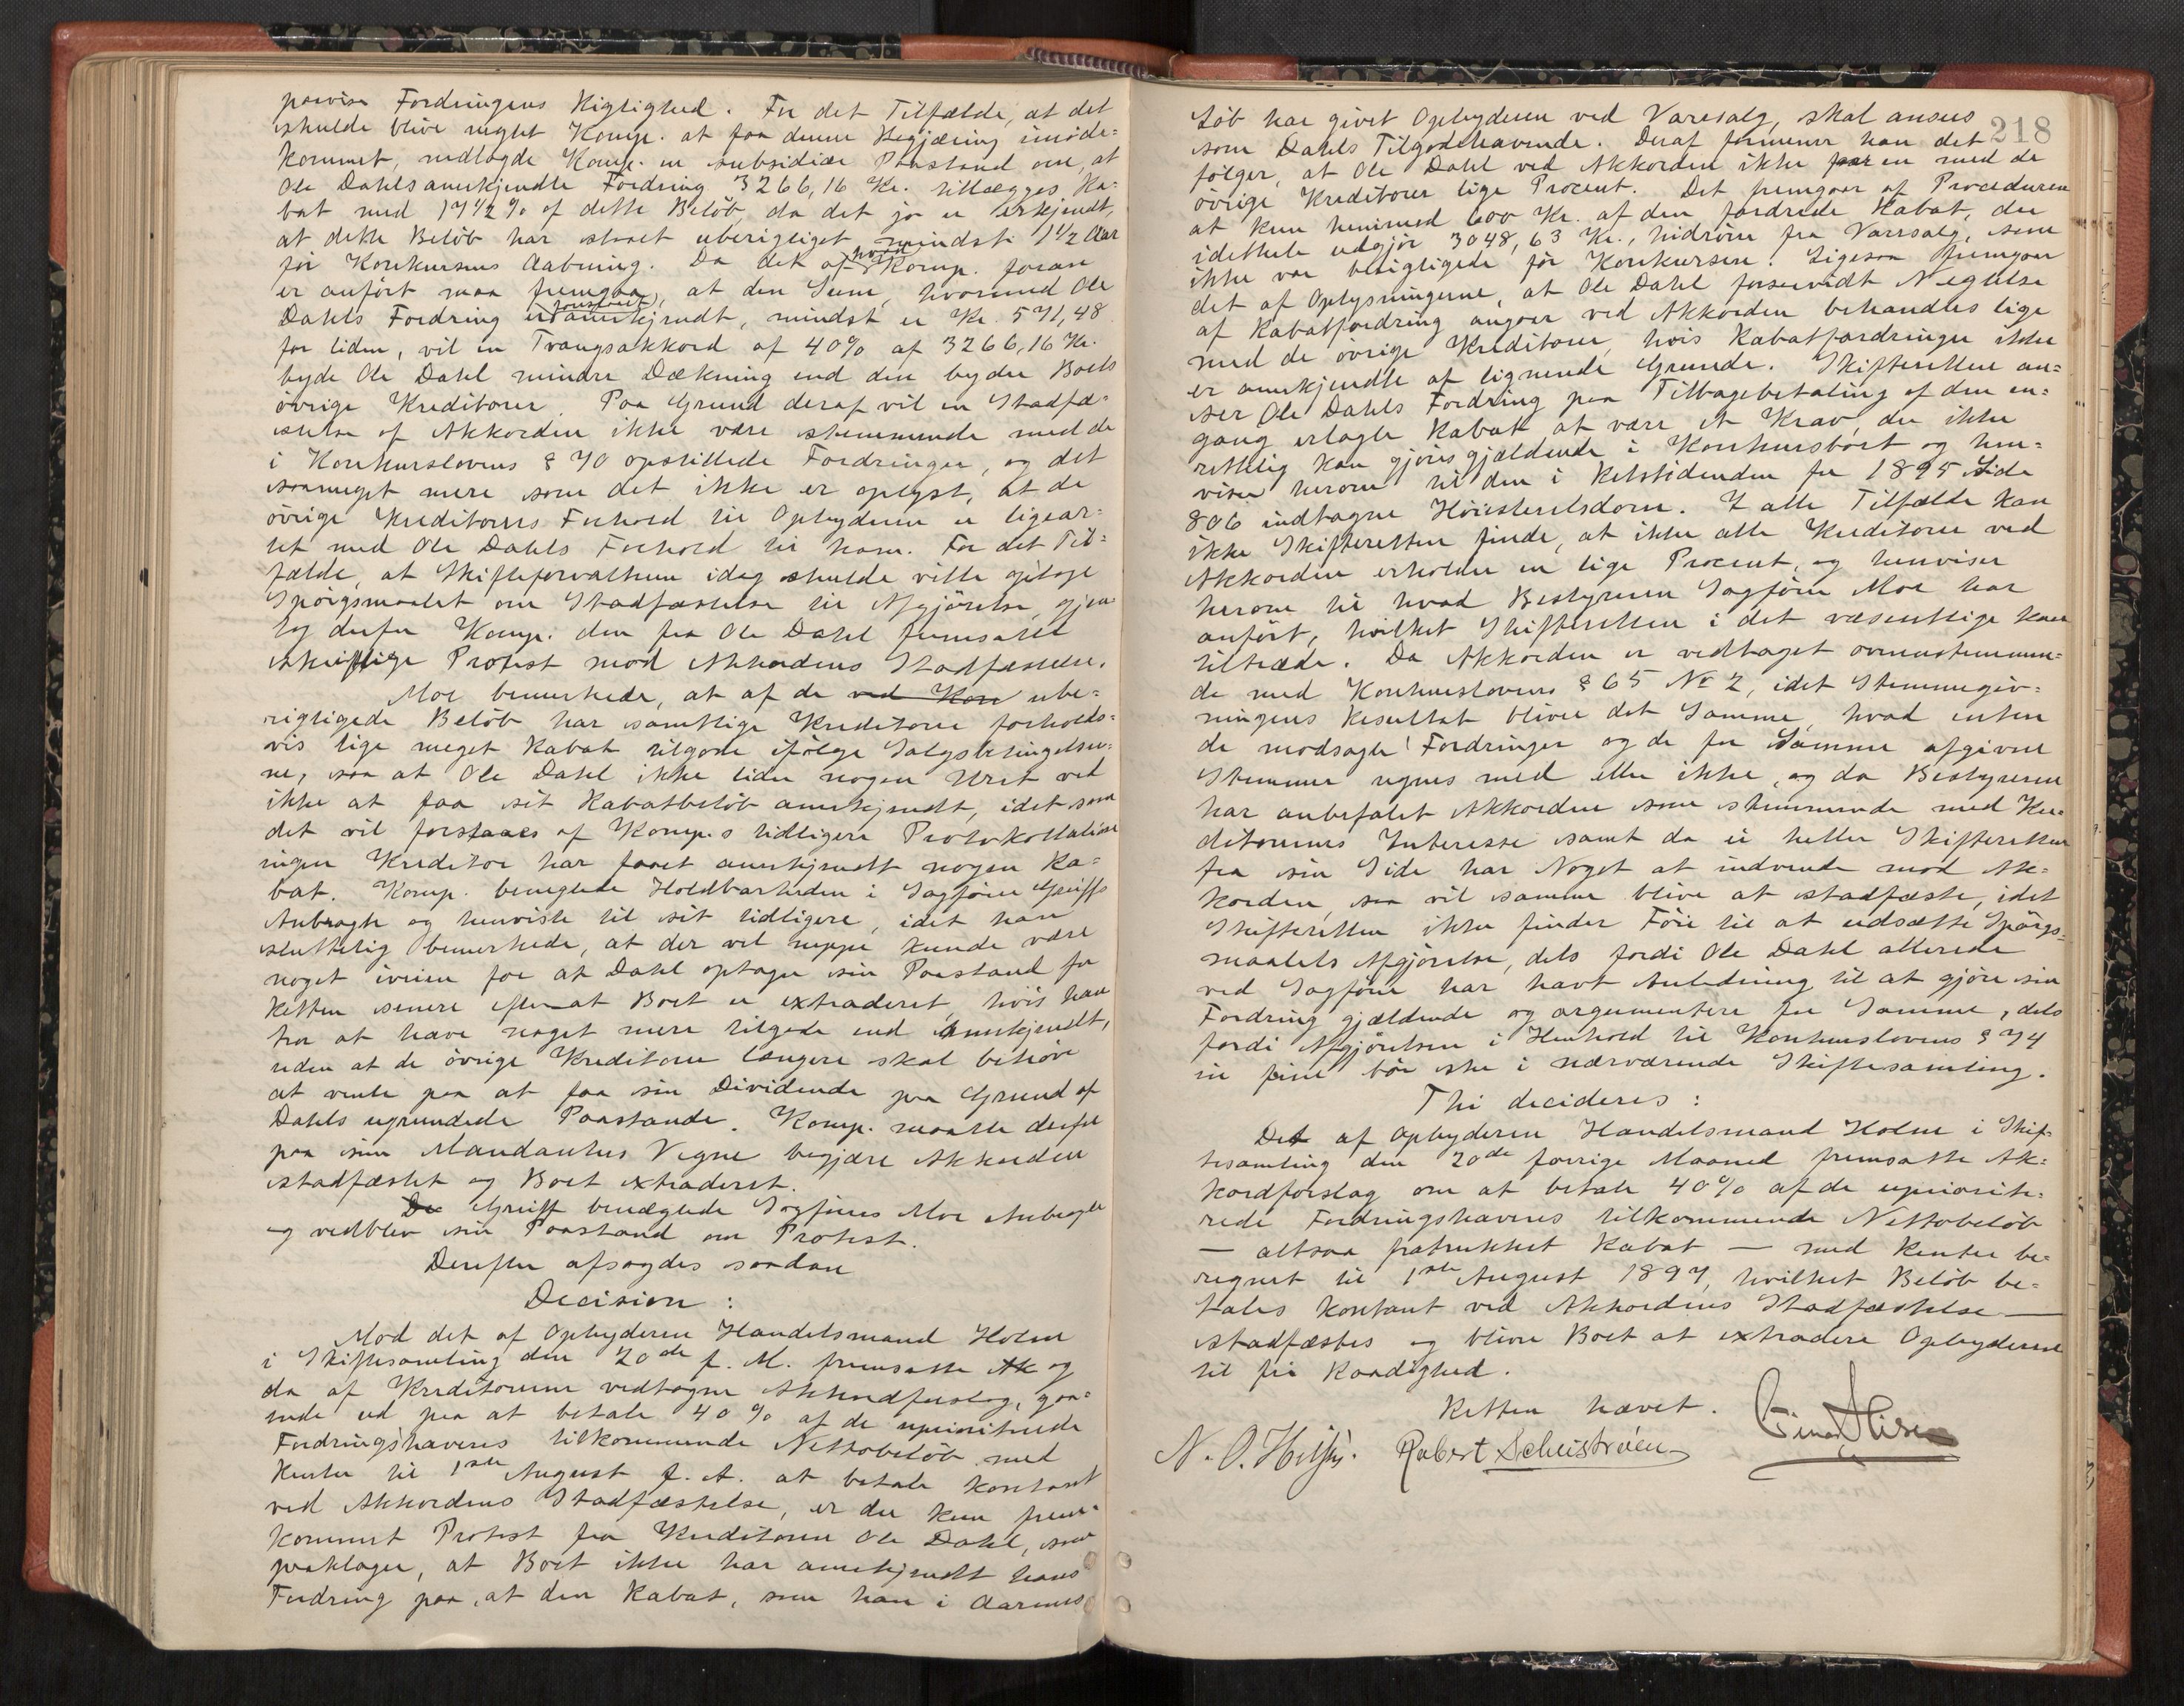 paavise Fordringens Rigtighed. For det Tilfælde, at det
skulde blive negtet Komp. at faa denne Begjæring imøde-
kommet, nedlagde Komp. en subsidiær Paastand om, at
Ole Dahls anerkjendte Fordring 3266,16 Kr. tillægges Ra-
bat med 17 1/2 % af dette Beløb, da det jo er erkjendt,
at dette Beløb har staaet uberigtiget mindst 1 1/2 Aar
før Konkursens Aabning. Da det af hvad Komp. foran
er anført maa fremgaa, at den Sum, hvormed Ole
Dahls Fordring er anerkjendt, mindst er Kr. 571,48
for liden, vil en Tvangsakkord af 40% af 3266,16 Kr.
byde Ole Dahl mindre Dækning end den byder Boets
øvrige Kreditorer. Paa Grund deraf vil en Stadfæ-
stelse af Akkorden ikke være stemmende med de
i Konkurslovens § 70 opstillede Fordringer, og det
saameget mere som det ikke er oplyst, at de
øvrige Kreditorers Forhold til Opbyderen er ligear-
tet med Ole Dahls Forhold til ham. For det Til-
fælde, at Skifteforvalteren idag skulde ville optage
Spørgsmaalet om Stadfæstelse til Afgjørelse, gjen-
tog derfor Komp. den fra Ole Dahl fremsatte
skriftlige Protest mod Akkordens Stadfæstelse.
Moe bemerkede, at af de ved Kon ube-
rigtigede Beløb har samtlige Kreditorer forholds-
vis lige meget Rabat tilgode ifølge Salgsbetingelser-
ne, saa at Ole Dahl ikke lider nogen Uret ved
ikke at faa sit Rabatbeløb anerkjendt, idet som
det vil forstaaes af Komp.s tidligere Protokollation
ingen Kreditor har faaet anerkjendt nogen Ra-
bat. Komp. benegtede Holdbarheden i Sagfører Griffs
Anbragte og henviste til sit tidligere, idet han
sluttelig bemerkede, at der vel neppe kunde være
noget iveien for at Dahl optager sin Paastand for
Retten senere efterat Boet er extraderet, hvis han
tror at have noget mere tilgode end Anerkjendt,
uden at de øvrige Kreditorer længere skal behøve
at vente paa at faa sin Dividende paa Grund af
Dahls ugrundede Paastande. Komp. maatte derfor
paa sine Mandanters Vegne begjære Akkorden
stadfæstet og Boet extraderet.
De Griff benægtede Sagfører Moe Anbragte
og vedblev sin Paastand om Protest.
Derefter afsagdes saadan
Decision:
Mod det af Opbyderen Handelsmand Holm
i Skiftesamling den 20de f. M. fremsatte Ak og
da af Kreditorerne vedtagne Akkordforslag, gaa-
ende ud paa at betale 40% af de uprioriterede
Fordringshaveres tilkommende Nettobeløb med
Renter til 1ste August f. A. at betale kontant
ved Akkordens Stadfæstelse, er der kun frem-
kommet Protest fra Kreditoren Ole Dahl, som
paaklager, at Boet ikke har anerkjendt hans
Fordring paa, at den Rabat, som han i Aarenes
218
Løb har givet Opbyderen ved Varesalg, skal ansees
som Dahls Tilgodehavende. Deraf formener han det
følger, at Ole Dahl ved Akkorden ikke faar en med de
øvrige Kreditorer lige Procent. Det fremgaar af Proceduren
at kun henimod 600 Kr. af den fordrede Rabat, der
idethele udgjør 3048,63 Kr., hidrører fra Varesalg, som
ikke var berigtigede før Konkursen. Ligesaa fremgaar
det af Oplysningerne, at Ole Dahl forsaavidt Negtelse
af Rabatfordring angaar ved Akkorden behandles lige
med de øvrige Kreditorer, hvis Rabatfordringer ikke
er anerkjendte af lignende Grunde. Skifteretten an-
ser Ole Dahls Fordring paa Tilbagebetaling af den en-
gang erlagte Rabat at være et Krav, der ikke
rettelig kan gjøres gjældende i Konkursboet og hen-
viser herom til den i Retstidenden for 1895 Side
806 indtagne Høiesteretsdom. I alle Tilfælde kan
ikke Skifteretten finde, at ikke alle Kreditorer ved
Akkorden erholder en lige Procent, og henviser
herom til hvad Bestyreren Sagfører Moe har
anført, hvilket Skifteretten i det væsentlige kan
tiltræde. Da Akkorden er vedtaget overensstemmen-
de med Konkurslovens § 65 No 2, idet Stemmegiv-
ningens Resultat bliver det Samme, hvad enten
de modsagte Fordringer og de for Samme afgivne
Stemmer regnes med eller ikke, og da Bestyreren
har anbefalet Akkorden som stemmende med Kre-
ditorernes Interesse samt da ei heller Skifteretten
fra sin Side har Noget at indvende mod Ak-
korden, saa vil samme blive at stadfæste, idet
Skifteretten ikke finder Føie til at udsætte Spørgs-
maalets Afgjørelse, dels fordi Ole Dahl allerede
ved Sagfører har havt Anledning til at gjøre sin
Fordring gjældende og argumentere for Samme, dels
fordi Afgjørelsen i Henhold til Konkurslovens § 74
in fine bør ske i nærværende Skiftesamling.
Thi decideres:
Det af Opbyderen Handelsmand Holm i Skif-
tesamling den 20de forrige Maaned fremsatte Ak-
kordforslag om at betale 40% af de uprioriti-
rede Fordringshaveres tilkommende Nettobeløb
— altsaa fratrukket Rabat — med Renter be-
regnet til 1ste August 1897, hvilket Beløb be-
tales kontant ved Akkordens Stadfæstelse —
stadfæstes og bliver Boet at extradere Opbyderen
til fri Raadighed.
Retten hævet.
N. O. Robert Scheistrøen